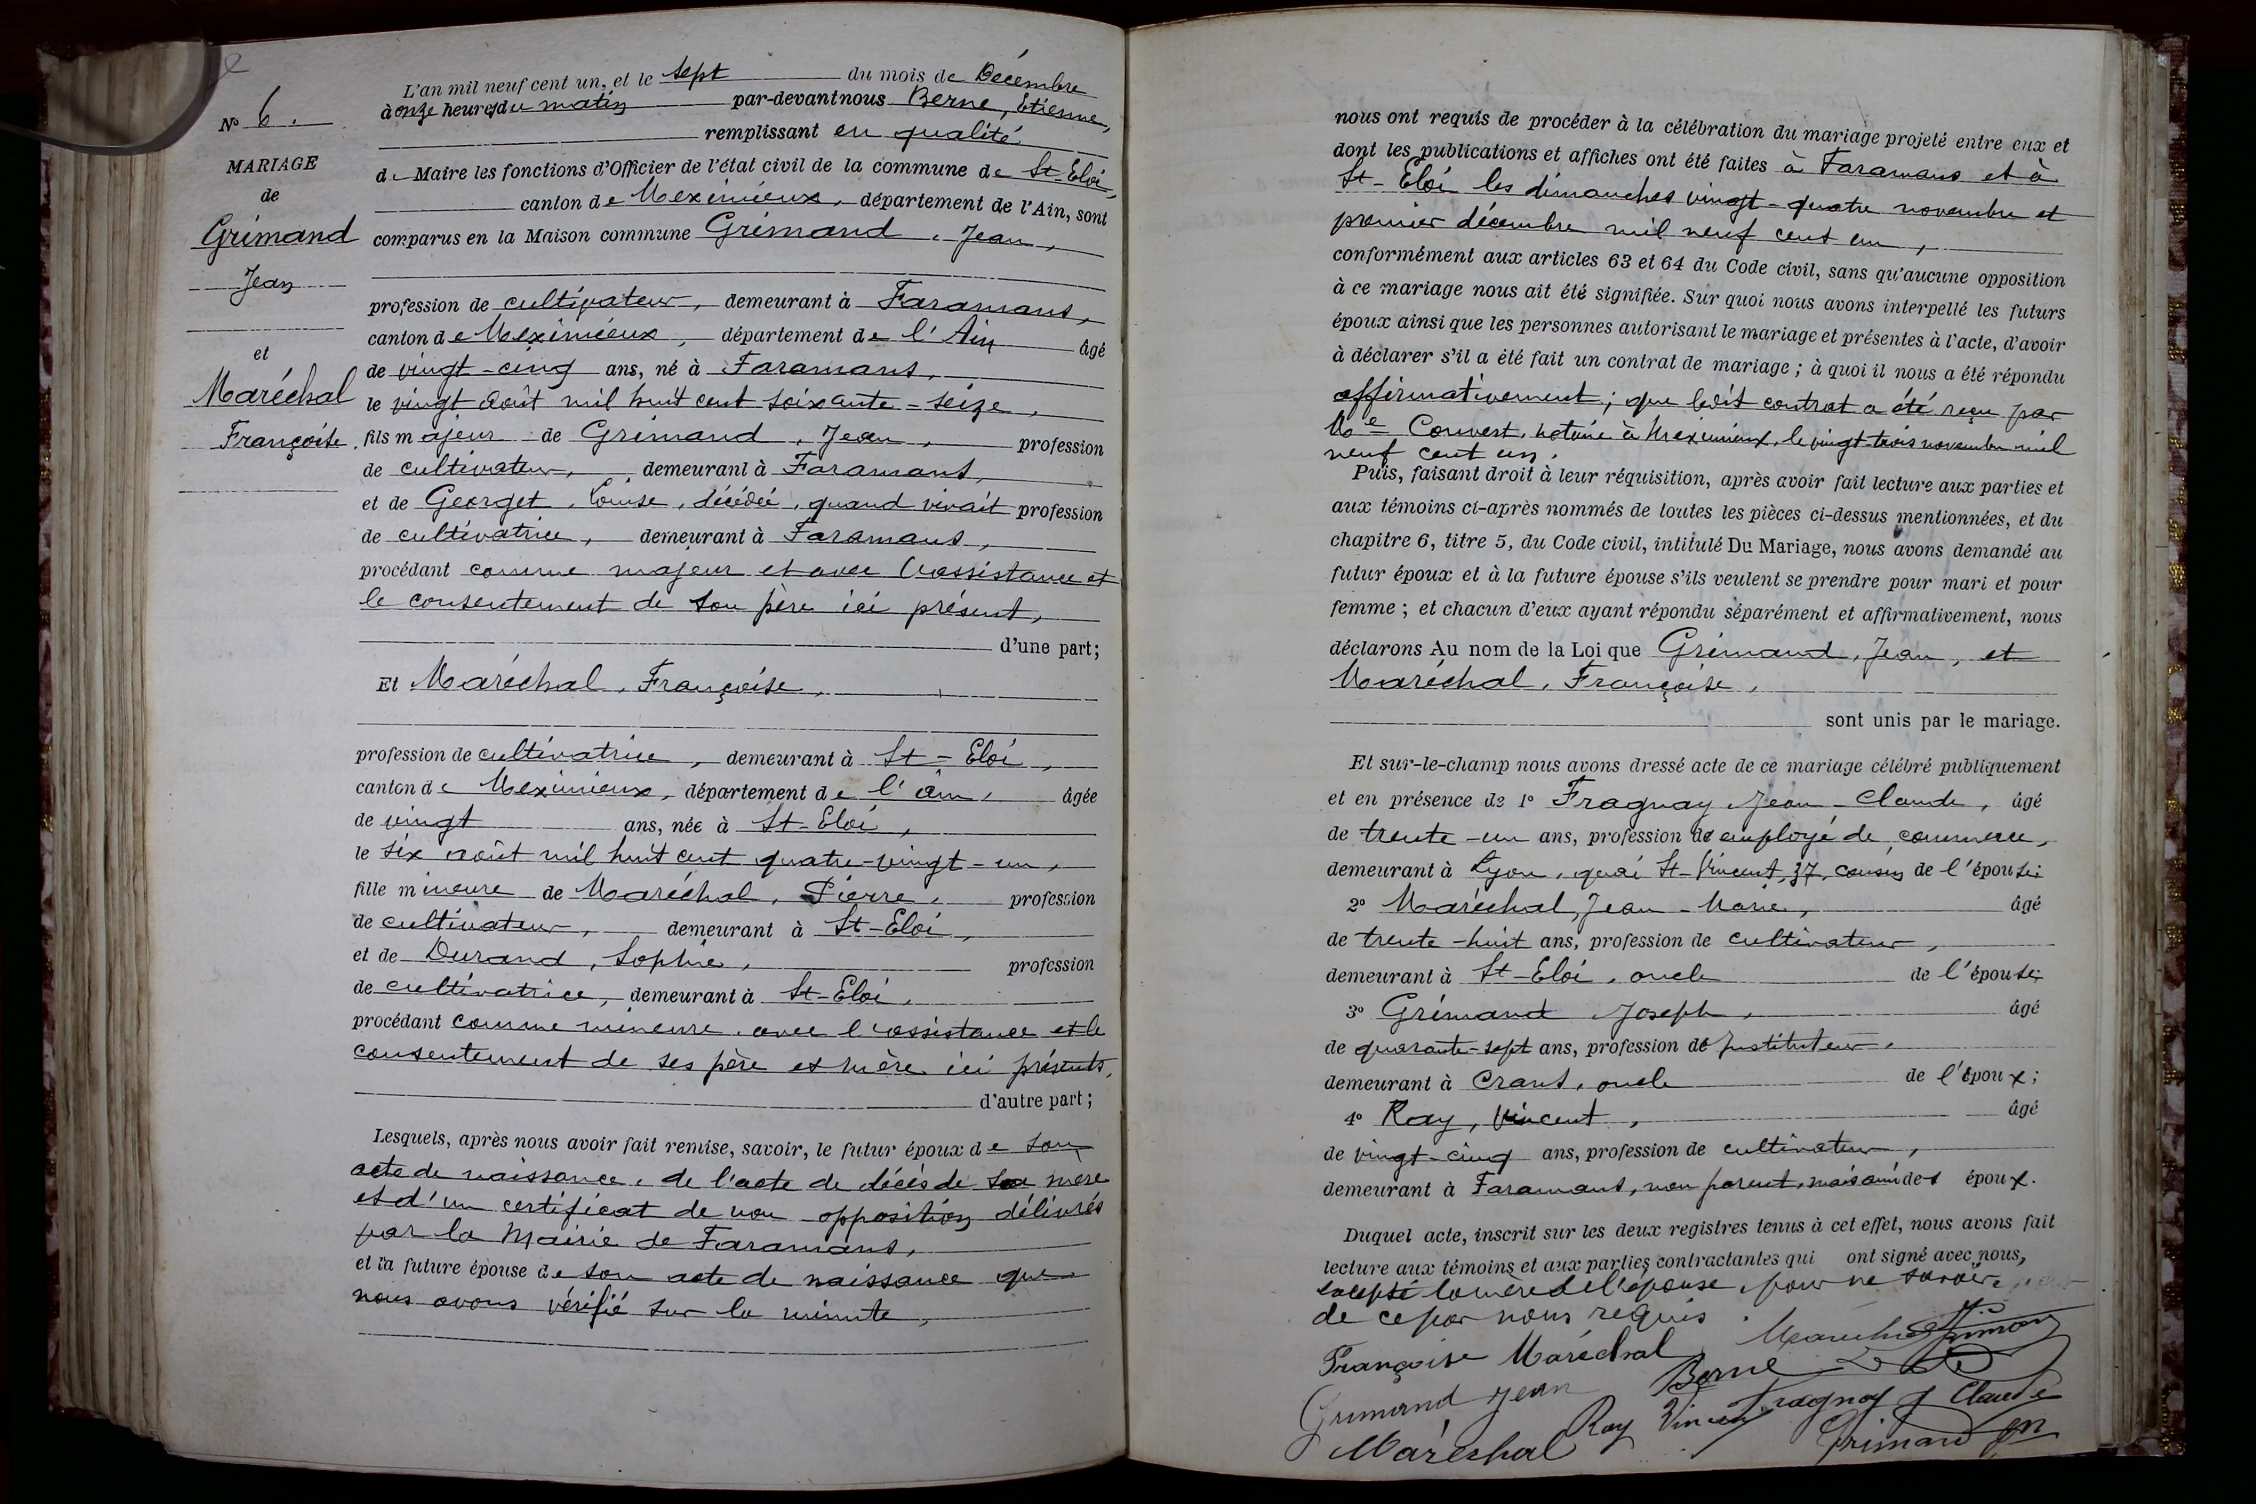 N° 6.
MARIAGE
de
Grimand
Jean
et
Maréchal
Françoise.
L'an mil neuf cent un, et le sept du mois de Décembre
à onze heures du matin par-devant nous Berne, Etienne,
remplissant en qualité
de Maire les fonctions d'Officier de l'état civil de la commune de St-Eloi,
canton de Meximieux, département de l'Ain, sont
comparus en la Maison commune Grimand, Jean,
profession de cultivateur, demeurant à Faramans,
canton de Meximieux, département de l'Ain âgé
de vingt-cinq ans, né à Faramans,
le vingt août mil huit cent soixante-seize,
fils majeur de Grimand, Jean, profession
de cultivateur, demeurant à Faramans,
et de Georget, Louise, décédée, quand vivait profession
de cultivatrice, demeurant à Faramans,
procédant comme majeur et avec l'assistance et
le consentement de son père ici présent,
d'une part;
Et Maréchal, Françoise,
profession de cultivatrice, demeurant à St-Eloi,
canton de Meximieux, département de l'Ain, âgée
de vingt ans, née à St-Eloi,
le six août mil huit cent quatre-vingt-un,
fille mineure de Maréchal, Pierre, profession
de cultivateur, demeurant à St-Eloi,
et de Durand, Sophie, profession
de cultivatrice, demeurant à St-Eloi,
procédant comme mineure, avec l'assistance et le
consentement de ses père et mère ici présents,
d'autre part;
Lesquels, après nous avoir fait remise, savoir, le futur époux de son
acte de naissance, de l'acte de décès de sa mère
et d'un certificat de non-opposition délivrés
par la Mairie de Faramans,
et la future épouse de son acte de naissance que
nous avons vérifié sur la minute,
nous ont requis de procéder à la célébration du mariage projeté entre eux et
dont les publications et affiches ont été faites à Faramans et à
St-Eloi les dimanches vingt-quatre novembre et
premier décembre mil neuf cent un,
conformément aux articles 63 et 64 du Code civil, sans qu'aucune opposition
à ce mariage nous ait été signifiée. Sur quoi nous avons interpellé les futurs
époux ainsi que les personnes autorisant le mariage et présentes à l'acte, d'avoir
à déclarer s'il a été fait un contrat de mariage; à quoi il nous a été répondu
affirmativement; que ledit contrat a été reçu par
Me Convert, notaire à Meximieux, le vingt-trois novembre mil
neuf cent un.
Puis, faisant droit à leur réquisition, après avoir fait lecture aux parties et
aux témoins ci-après nommés de toutes les pièces ci-dessus mentionnées, et du
chapitre 6, titre 5, du Code civil, intitulé Du Mariage, nous avons demandé au
futur époux et à la future épouse s'ils veulent se prendre pour mari et pour
femme; et chacun d'eux ayant répondu séparément et affirmativement, nous
déclarons Au nom de la Loi que Grimand, Jean, et
Maréchal, Françoise,
sont unis par le mariage.
Et sur-le-champ nous avons dressé acte de ce mariage célébré publiquement
et en présence de 1° Fragnay Jean-Claude, âgé
de trente-un ans, profession d'employé de commerce,
demeurant à Lyon, quai St-Vincent, 37, cousin de l'épouse;
2° Maréchal, Jean-Marie, âgé
de trente-huit ans, profession de cultivateur,
demeurant à St-Eloi, oncle de l'épouse;
3° Grimand Joseph, âgé
de quarante-sept ans, profession d'Instituteur,
demeurant à Crans, oncle de l'époux;
4° Ray, Vincent, âgé
de vingt-cinq ans, profession de cultivateur,
demeurant à Faramans, non parent, mais ami des époux.
Duquel acte, inscrit sur les deux registres tenus à cet effet, nous avons fait
lecture aux témoins et aux parties contractantes qui ont signé avec nous,
excepté la mère de l'épouse, pour ne savoir,
de ce par nous requis.
Françoise Maréchal Maréchal Grimand
Grimand Jean Berne
Ray Vincent Fragnay J Claude
Maréchal Grimand Jn